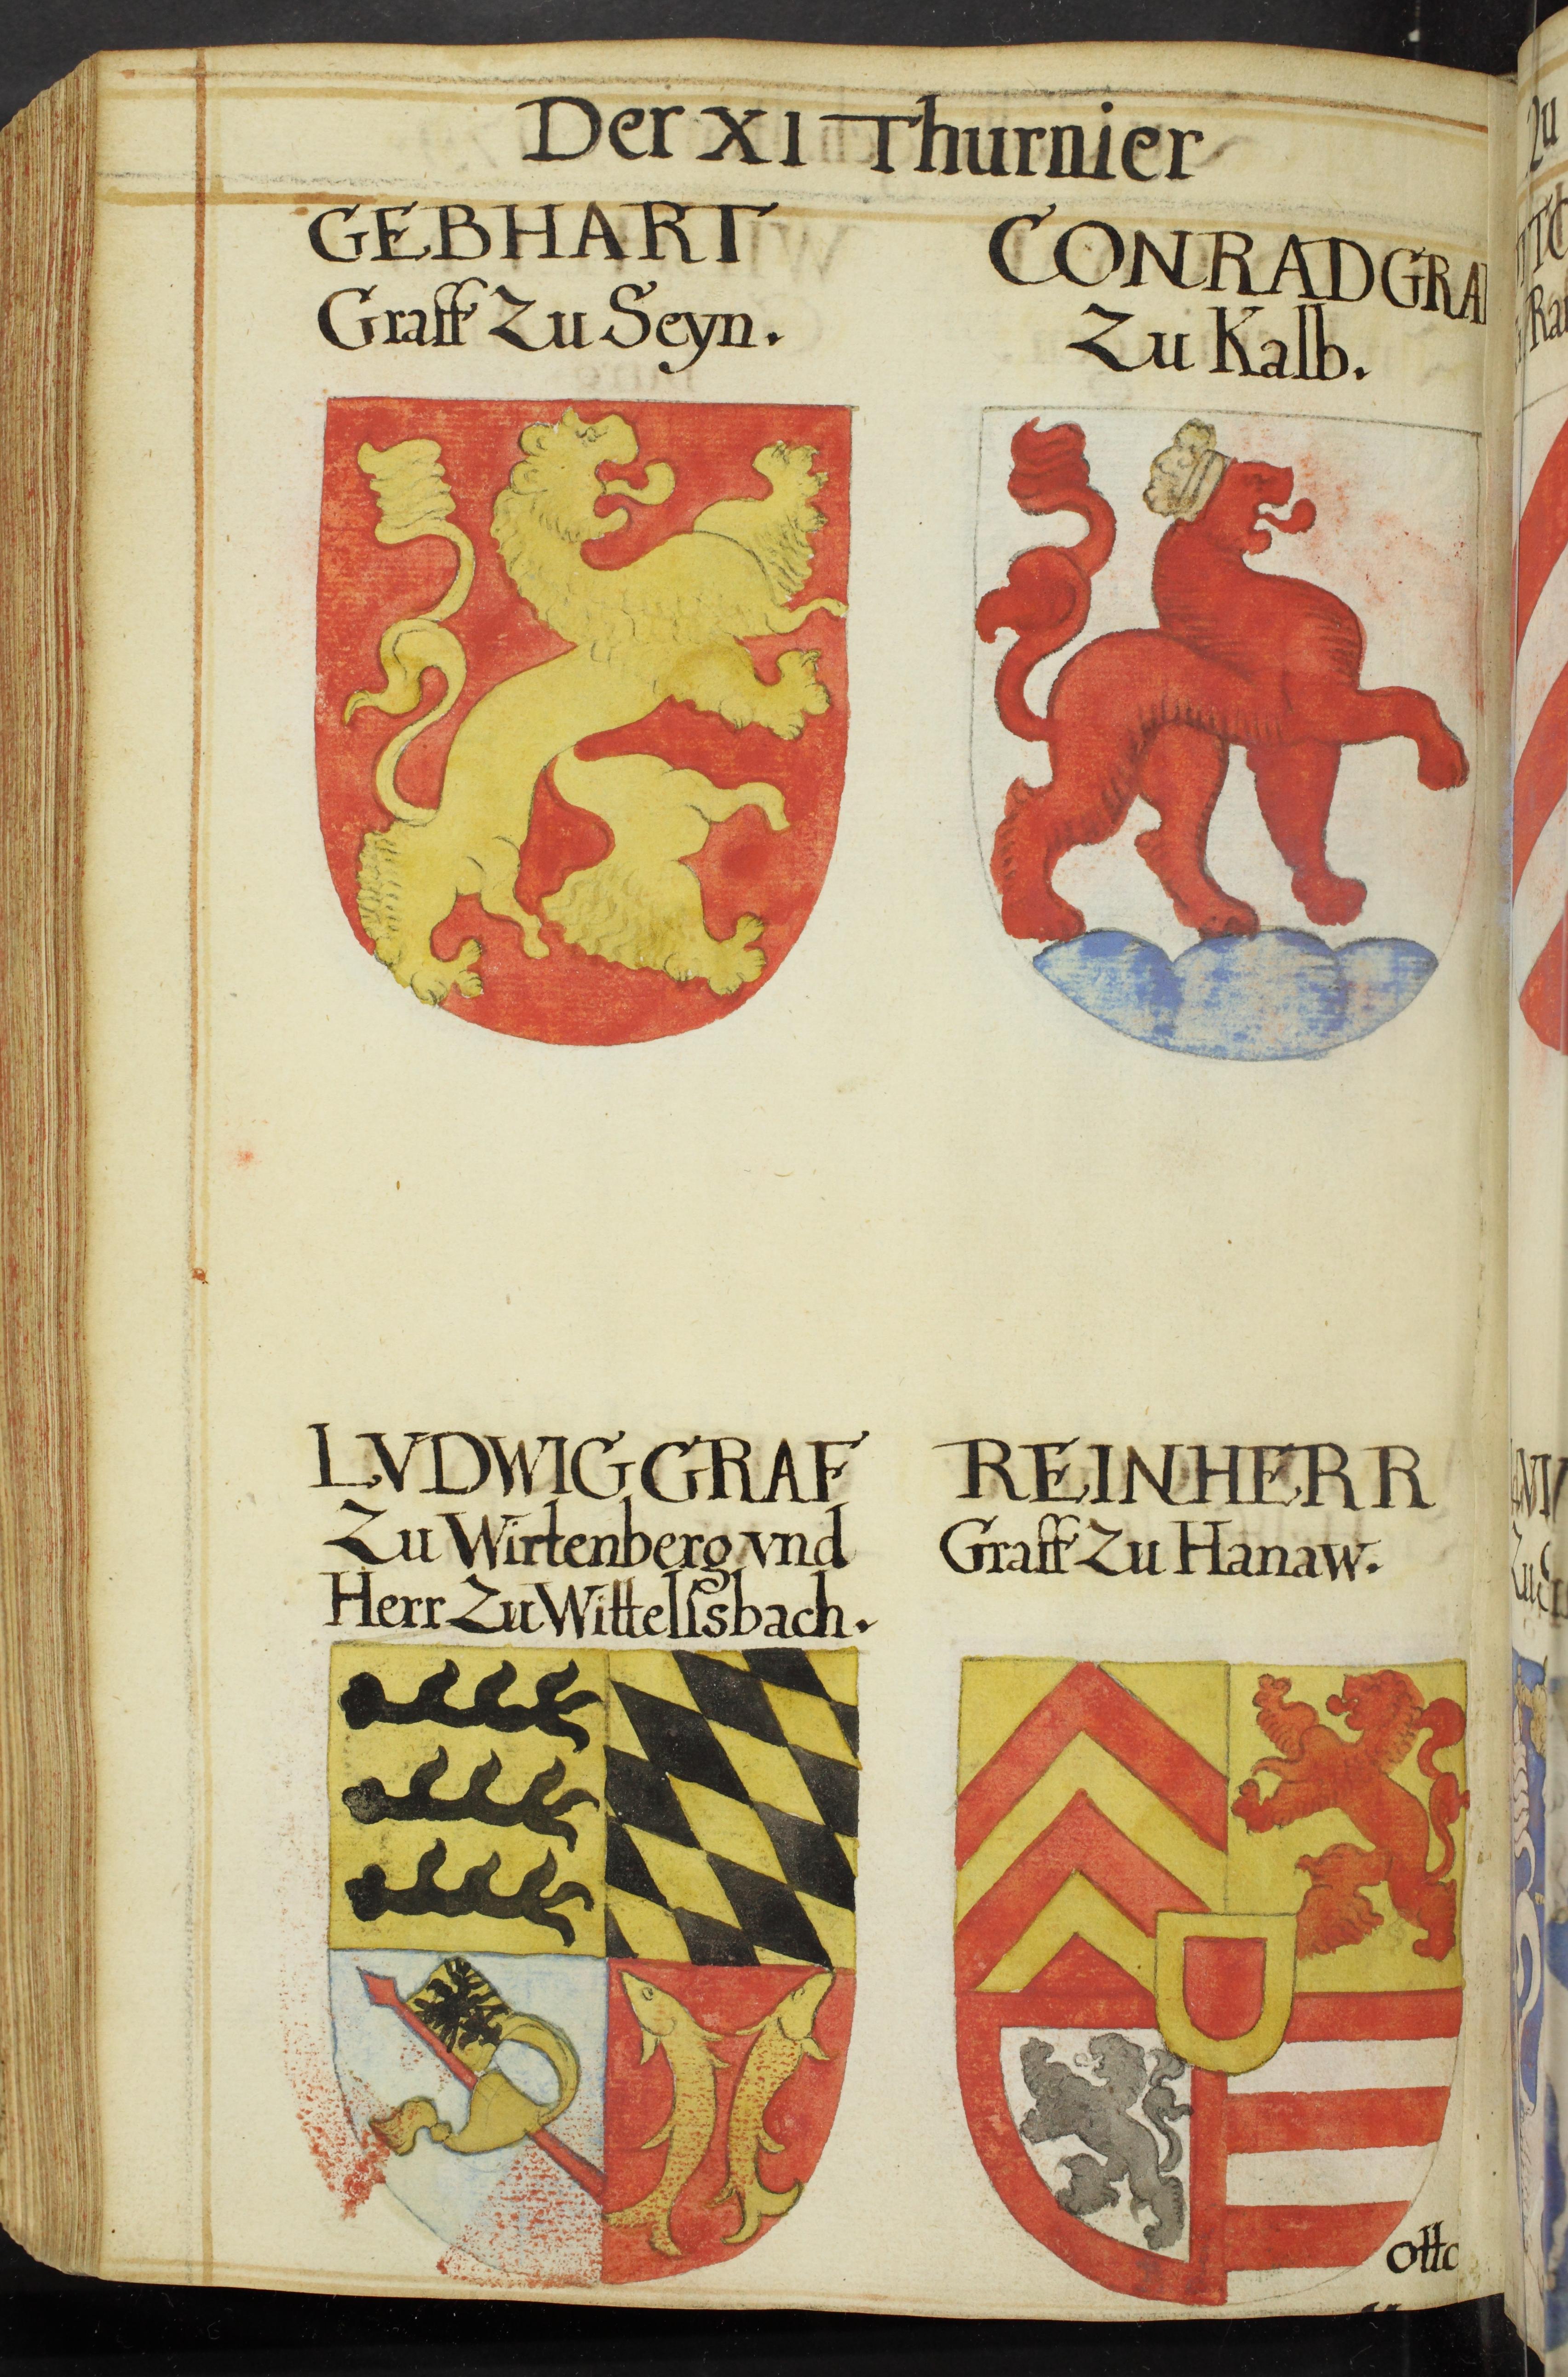 Der XI Thurnier
GEBHART
Graff Zu Seyn.
CONRAD GRA
Zu Kalb.
LVDWIG GRAF
Zu Wirtenberg vnd
Herr Zu Wittellsbach.
REINHERR
Graff Zu Hanaw.
otto